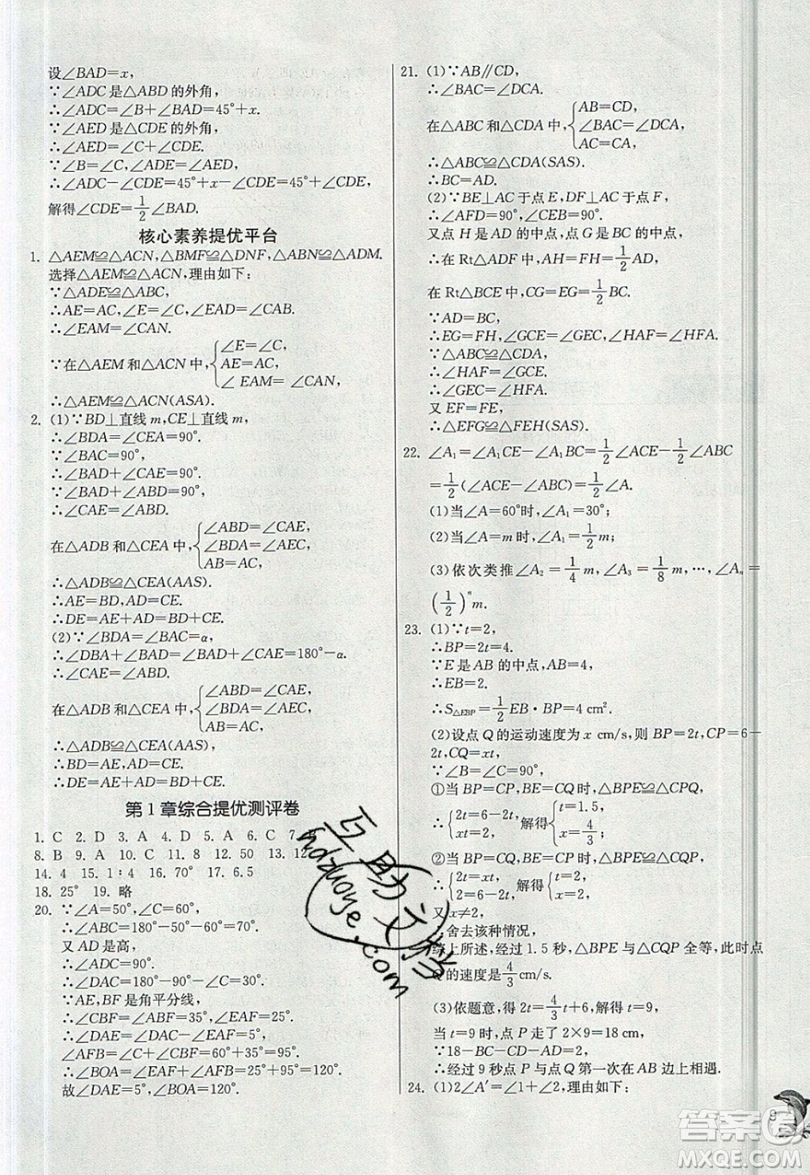 设∠BAD=x,
∵∠ADC是△ABD的外角,
∴∠ADC=∠B+∠BAD=45°+x.
∵∠AED是△CDE的外角,
∴∠AED=∠C+∠CDE.
∵∠B=∠C,∠ADE=∠AED,
∴∠ADC-∠CDE=45°+x-∠CDE=45°+∠CDE.
解得∠CDE=1/2∠BAD.
核心素养提优平台
1. △AEM≌△ACN,△BMF≌△DNF,△ABN≌△ADM.
选择△AEM≌△ACN,理由如下:
∵△ADE≌△ABC,
∴AE=AC,∠E=∠C,∠EAD=∠CAB.
∴∠EAM=∠CAN.
∵在△AEM和△ACN中,{∠E=∠C,
AE=AC,
∠EAM=∠CAN,
∴△AEM≌△ACN(ASA).
2. (1)∵BD⊥直线m,CE⊥直线m,
∴∠BDA=∠CEA=90°.
∵∠BAC=90°,
∴∠BAD+∠CAE=90°.
∵∠BAD+∠ABD=90°,
∴∠CAE=∠ABD.
在△ADB和△CEA中,{∠ABD=∠CAE,
∠BDA=∠AEC,
AB=AC,
∴△ADB≌△CEA(AAS).
∴AE=BD,AD=CE.
∴DE=AE+AD=BD+CE.
(2)∵∠BDA=∠BAC=α,
∴∠DBA+∠BAD=∠BAD+∠CAE=180°-α.
∴∠CAE=∠ABD.
在△ADB和△CEA中,{∠ABD=∠CAE,
∠BDA=∠AEC,
AB=AC,
∴△ADB≌△CEA(AAS).
∴AE=BD,AD=CE.
∴DE=AE+AD=BD+CE.
第1章综合提优测评卷
1. C 2. D 3. A 4. D 5. A 6. C 7.
8. B 9. A 10. C 11. 8 12. 50 13.
14. 4 15. 1∶4 16. 70° 17. 6.5
18. 25° 19. 略
20. ∵∠A=50°,∠C=60°,
∴∠ABC=180°-50°-60°=70°.
又AD是高,
∴∠ADC=90°.
∴∠DAC=180°-90°-∠C=30°.
∵AE,BF是角平分线,
∴∠CBF=∠ABF=35°,∠EAF=25°.
∴∠DAE=∠DAC-∠EAF=5°.
∠AFB=∠C+∠CBF=60°+35°=95°.
∴∠BOA=∠EAF+∠AFB=25°+95°=120°.
故∠DAE=5°,∠BOA=120°.
21. (1)∵AB∥CD,
∴∠BAC=∠DCA.
在△ABC和△CDA中,{AB=CD,
∠BAC=∠DCA,
AC=CA,
∴△ABC≌△CDA(SAS).
∴BC=AD.
(2)∵BE⊥AC于点E,DF⊥AC于点F,
∴∠AFD=90°,∠CEB=90°.
又点H是AD的中点,点G是BC的中点,
∴在Rt△ADF中,AH=FH=1/2AD,
在Rt△BCE中,CG=EG=1/2BC.
∵AD=BC,
∴EG=FH,∠GCE=∠GEC,∠HAF=∠HFA.
∵△ABC≌△CDA,∴∠GCE=∠HAF.
∴∠GEC=∠HFA.
又EF=FE,
∴△EFG≌△FEH(SAS).
22. ∠A₁=∠A₁CE-∠A₁BC=1/2∠ACE-1/2∠ABC
=1/2(∠ACE-∠ABC)=1/2∠A.
(1)当∠A=60°时,∠A₁=30°;
(2)当∠A=m时,∠A₁=1/2m;
(3)依次类推∠A₂=1/4m,∠A₃=1/8m,…,∠Aₙ=
(1/2)ⁿm.
23. (1)∵t=2,
∴BP=2t=4.
∵E是AB的中点,
∴EB=2.
∴S△EBP=1/2EB·BP=4 cm².
(2)设点Q的运动速度为x cm/s,则BP=2t,CP=6-
2t,CQ=xt,
①当BP=CP,BE=CQ时,△EBP≌△CPQ,
∴{2t=6-2t,
2=xt, 解得{t=1.5,
x=4/3;
②当BP=CQ,BE=CP时,△BEP≌△CPQ,
∴{2t=xt,
2=6-2t, 解得{t=2,
x=2,
又x≠2,
∴舍去该种情况,
综上所述,经过1.5秒,△BPE与△CQP全等,此时点
Q的速度是4/3 cm/s.
(3)依题意,得2t=4/3t+6,解得t=9,
当t=9时,点P走了2×9=18 cm,
∵18-BC-DC-AD=2,
∴经过9秒,点P与点Q第一次在AB边上相遇.
24. (1)2∠A′=∠1+∠2,理由如下:
互助文档
hdzuoye.com
答案圈
MXQE.COM